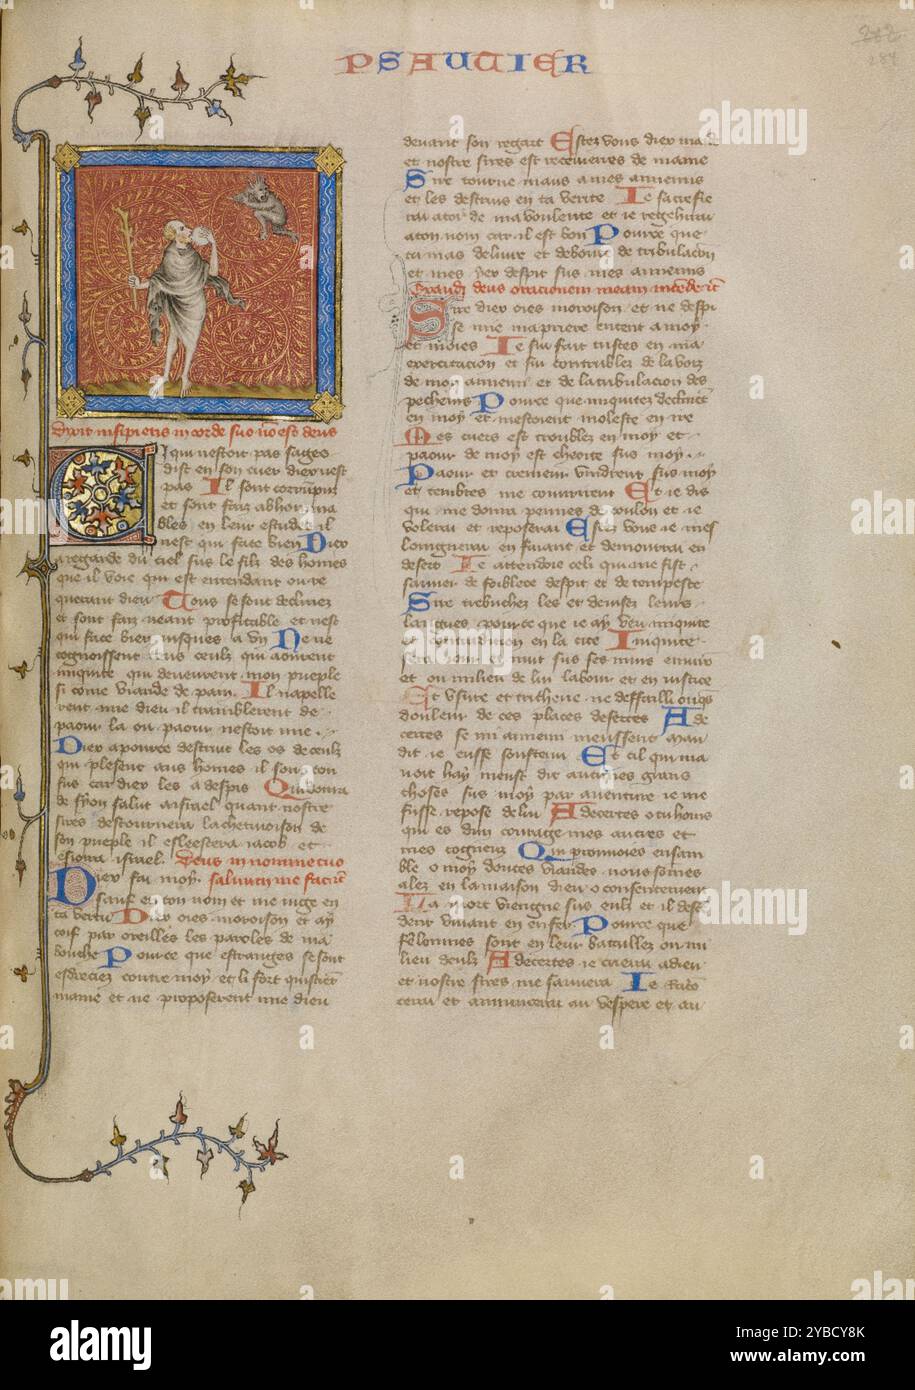 PSAUTIER
282
284
Dixit insipiens in corde suo non est deus
Cil qui nestoit pas sages
dist en son cuer dieu nest
pas Il sont corrumpu
et sont faiz abhomina
bles en leur estudes il
nest qui face bien Dieu
regarde du ciel sus le filz des homes
que il voie qui est entendant ou re
querant dieu Touz se sont declinez
et sont faiz neant profitable et nest
qui face bien jusques a un Ne ne
cognoissent touz ceulz qui aourent
iniquite qui deveurent mon pueple
si come viande de pain. Il napelle
rent mie dieu il tramblerent de
paour la ou paour nestoit mie.
Diex a pource destruit les os de ceulz
qui plesent aus homes il sont con
fus car diex les a despis Qui donra
de syon salut a israel quant nostre
sires destournera la chetivoison de
son pueple il esleescera jacob et
esjoira israel. Deus in nomine tuo
Diex fai moy salvum me fac
sauf en ton nom et me juge en
ta vertu Diex oies moroison et ay
coif par oreilles les paroles de ma
bouche Pource que estranges se sont
esdreciez contre moy et li fort quistrent
mame et ne proposerent mie dieu
devant son regart Estez vous diex ma
et nostre sires est receiverres de mame
Sire tourne maus a mes annemis
et les destruis en ta verite Je sacrefie
rai a toi de ma voulente et je regehirai
a ton nom car il est bon Pource que
tu mas delivre et deboute de tribulacion
et mes yex despit sus mes annemis
Exaudi deus orationem meam
Sire diex oies moroison et ne despi
se mie ma priere entent a moy
et moies Je sui fait tristes en ma
exercitacion et sui contrublez de la voiz
de mon annemi et de la tribulacion des
pecheurs Pource que iniquitez declinerent
en moy et mestoient moleste en ire
Mes cuers est troublez en moy et
paour de mort est cheoite sus moy
Paour et cremeur vindrent sus moy
et tenebres me couvrirent Et je dis
qui me donra pennes de coulon et je
volerai et reposerai Estez vous je mes
loingnerai en fuiant et demourrai en
desert Je attendoie celi qui me fist
sauver de foiblece despit et de tempeste
Sire trebuchez les et devisez leurs
langues pource que je ay veu iniquite
et contradicion en la cite Iniquite
et ou milieu de lui labour et en justice
Et usure et tricherie ne deffailli onques
douleur de ces places desertes Ade
certes se mi annemi meussent mau
dit je eusse soustenu Et cil qui ma
voit hay meust dit aucunes grans
choses sus moy par aventure je me
fusse repost de lui Adecertes o tu homs
qui es dun courage mes autres et
mes cogneuz Qui prennoies ensam
ble o moy douces viandes nous somes
alez en la maison dieu o consentement
La mort viengne sus eulz et il desce
dent vivant en enfer Pource que
felonnies sont en leur batailles ou mi
lieu deulz Adecertes je criai a dieu
et nostre sires me sauvera Je raco
terai et annuncerai au vespere et au
alamy
a
Image ID: 2YBCY8K
www.alamy.com